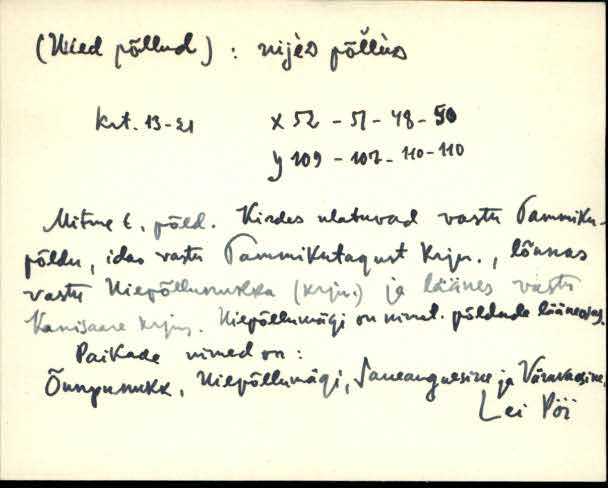 (Nied põllud) : nijèd põllùd
krt. 13-21 x 52 - 51 - 48 - 50
y 109 - 107 - 110 - 110
Mitme t. põld. Kirdes ulatuvad vastu Tammiku-
põldu, idas vastu Tammikutagust krjm., lõunas
vastu Niepõllunukka (krjm.) ja läänes vastu
Kanisaare krjm. Niepõllumägi on nimet. põldude lääneosas.
Paikade nimed on:
Õunpunukk, Niepõllumägi, ja Väravaesine.
Lei Pöi